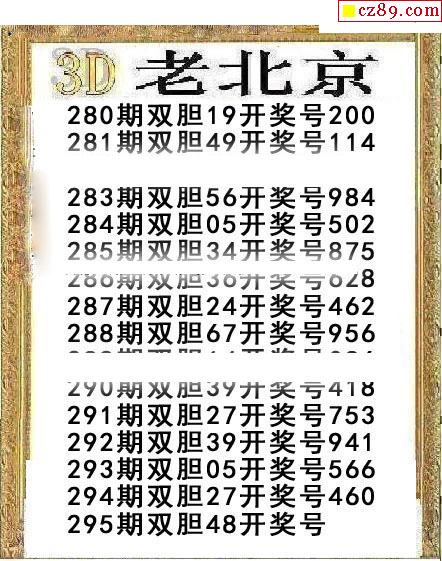 cz89.com
3D 老北京
280期双胆19开奖号200
281期双胆49开奖号114
283期双胆56开奖号984
284期双胆05开奖号502
285期双胆34开奖号875
286期双胆36开奖号628
287期双胆24开奖号462
288期双胆67开奖号956
期双胆开奖号
290期双胆39开奖号418
291期双胆27开奖号753
292期双胆39开奖号941
293期双胆05开奖号566
294期双胆27开奖号460
295期双胆48开奖号